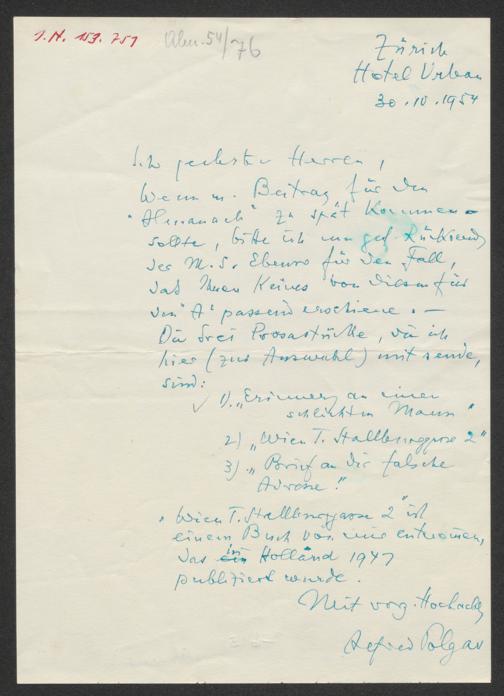 I.N. 153.751
Alm. 54/76
Zürich
Hotel Urban
30.10.1954
Sehr geehrte Herren,
Wenn m. Beitrag für den
"Almanach" zu spät kommen
sollte, bitte ich um gef. Rücksendg
der M.S. Ebenso für den Fall,
daß Ihnen Keines von diesen für
den "A" passend erschiene. —
Die drei Prosastücke, die ich
hier (zur Auswahl) mit sende,
sind:
1). „Erinnerg an einen
schlichten Mann"
2) „Wien I. Stallburggasse 2"
3) „Brief an die falsche
Adresse".
"Wien I. Stallburggasse 2" ist
einem Buch von mir entnommen,
das in Holland 1947
publiziert wurde.
Mit vorz. Hochachtg
Alfred Polgar